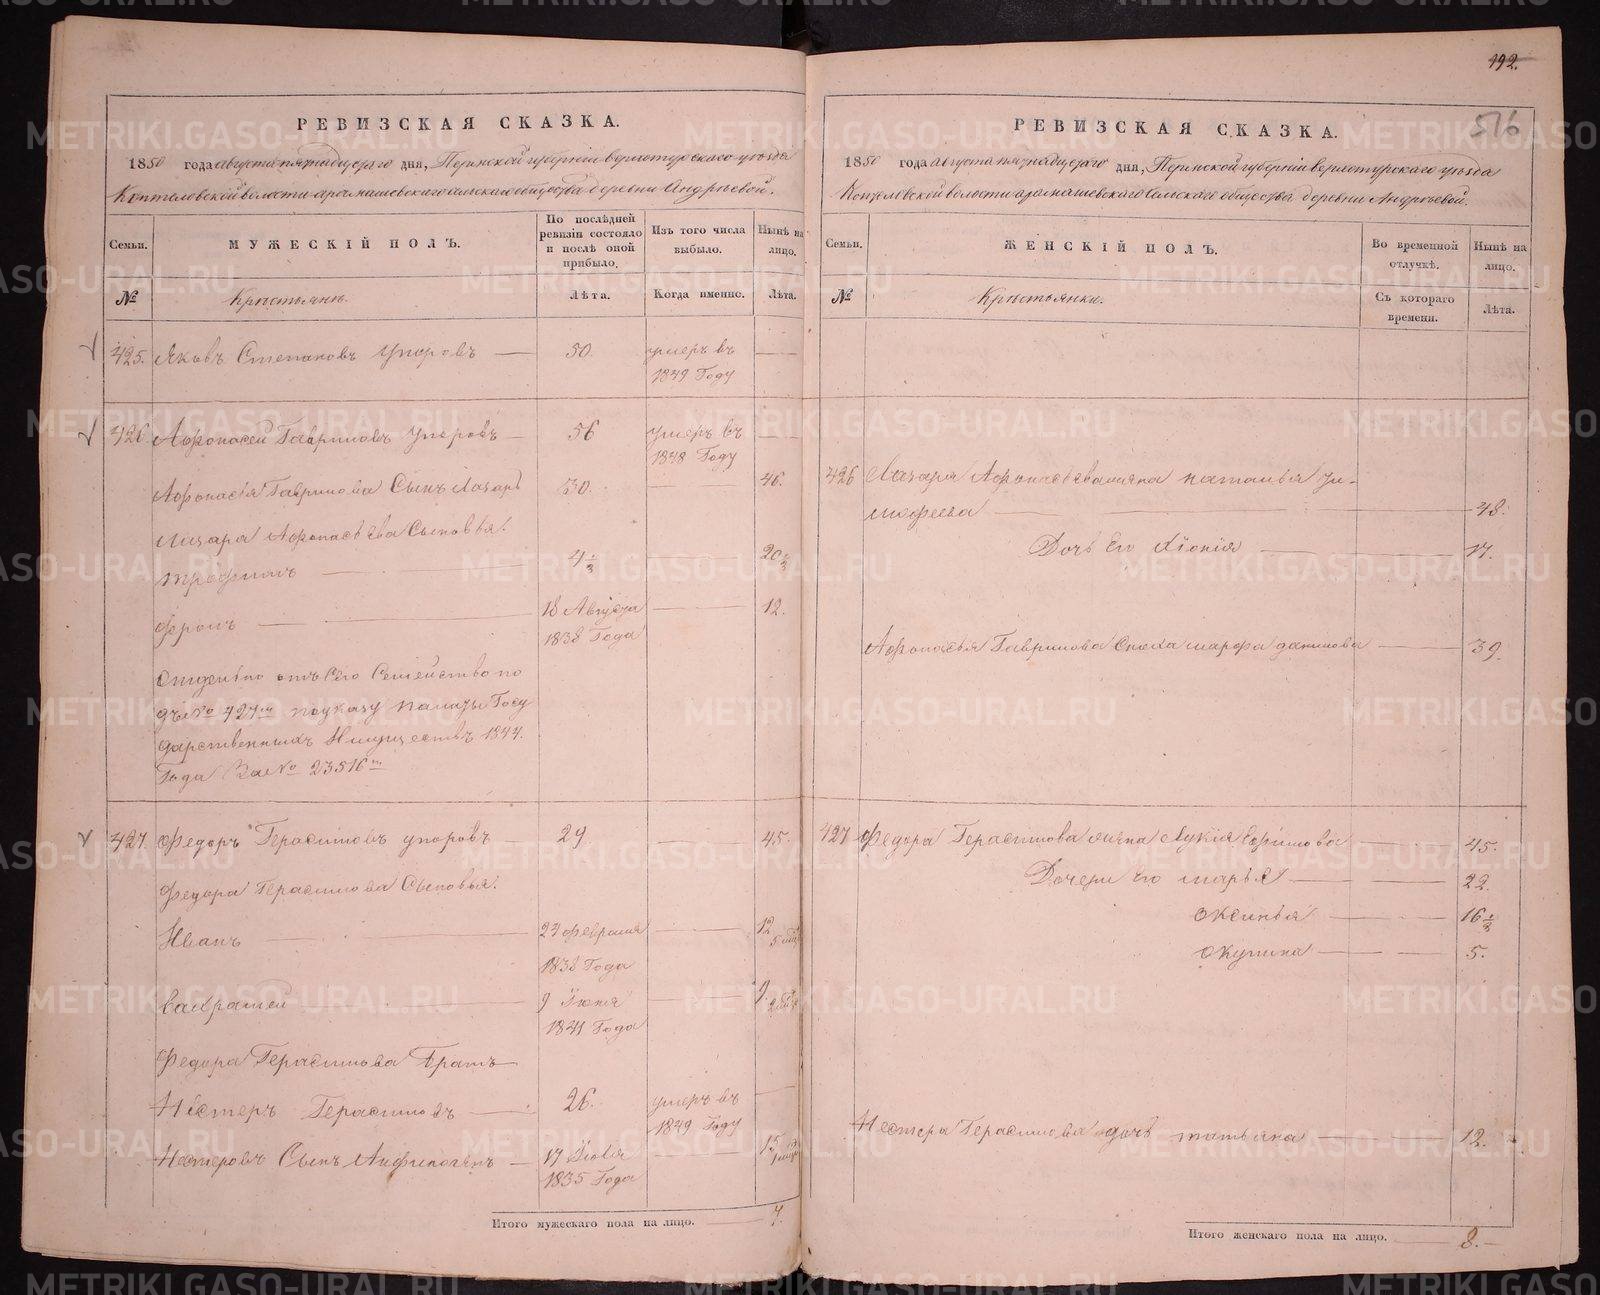 192.
516
РЕВИЗСКАЯ СКАЗКА.
1850 года августа пятнадцатаго дня, Пермской губерніи верхотурскаго уѣзда
Коптеловской волости арамашевскаго сельскаго общества деревни Андрѣевой.
Семьи.
МУЖЕСКІЙ ПОЛЪ.
По послѣдней ревизіи состояло и послѣ оной прибыло.
Изъ того числа выбыло.
Нынѣ на лицо.
№
Крестьянъ.
Лѣта.
Когда именно.
Лѣта.
425. Яковъ Степановъ Упоровъ — 50. умеръ въ
1849 Году
426 Афонасей Гавриловъ Упоровъ — 56 умеръ въ
1848 Году
Афонасія Гаврилова Сынъ Лазарь 30. 46.
Лазаря Афонасьева Сыновья.
Трофимъ 4 1/2 20 1/2
Фролъ 18 Августа 12.
1838 Года
Отдѣльно отъ сего Семейство по
дъ № 427м по указу палаты Госу
дарственныхъ Имуществъ 1844.
Года За № 23516м
427. Федоръ Герасимовъ упоровъ 29. 45.
Федора Герасимова Сыновья.
Иванъ 27 февраля 12 5 мѣ
1838 Года
варфоламей 9 Іюня 9. 2 мѣ
1841 Года
Федора Герасимова Братъ
Нестеръ Герасимовъ 26. умеръ въ
1849 Году
Нестеровъ Сынъ Анфиногенъ 17 Іюля 15 1 мѣ
1835 Года
Итого мужескаго пола на лицо. 7.
РЕВИЗСКАЯ СКАЗКА.
1850 года августа пятнадцатаго дня, Пермской губерніи верхотурскаго уѣзда
Коптеловской волости арамашевскаго Сельскаго общества деревни Андрѣевой.
Семьи.
ЖЕНСКІЙ ПОЛЪ.
Во временной отлучкѣ.
Нынѣ на лицо.
№
Крестьянки.
Съ котораго времени.
Лѣта.
426 Лазаря Афонасьева жена наталья Ти-
мофеева 48.
Дочь Его Хіонія 17.
Афонасья Гаврилова Сноха марфа данилова 39.
427 Федора Герасимова жена Лукія Ефимова 45.
Дочери Его марья 22.
Оксинья 16 1/2
Окулина 5.
Нестера Герасимова дочь татьяна 12.
Итого женскаго пола на лицо. 8.
METRIKI.GASO-URAL.RU